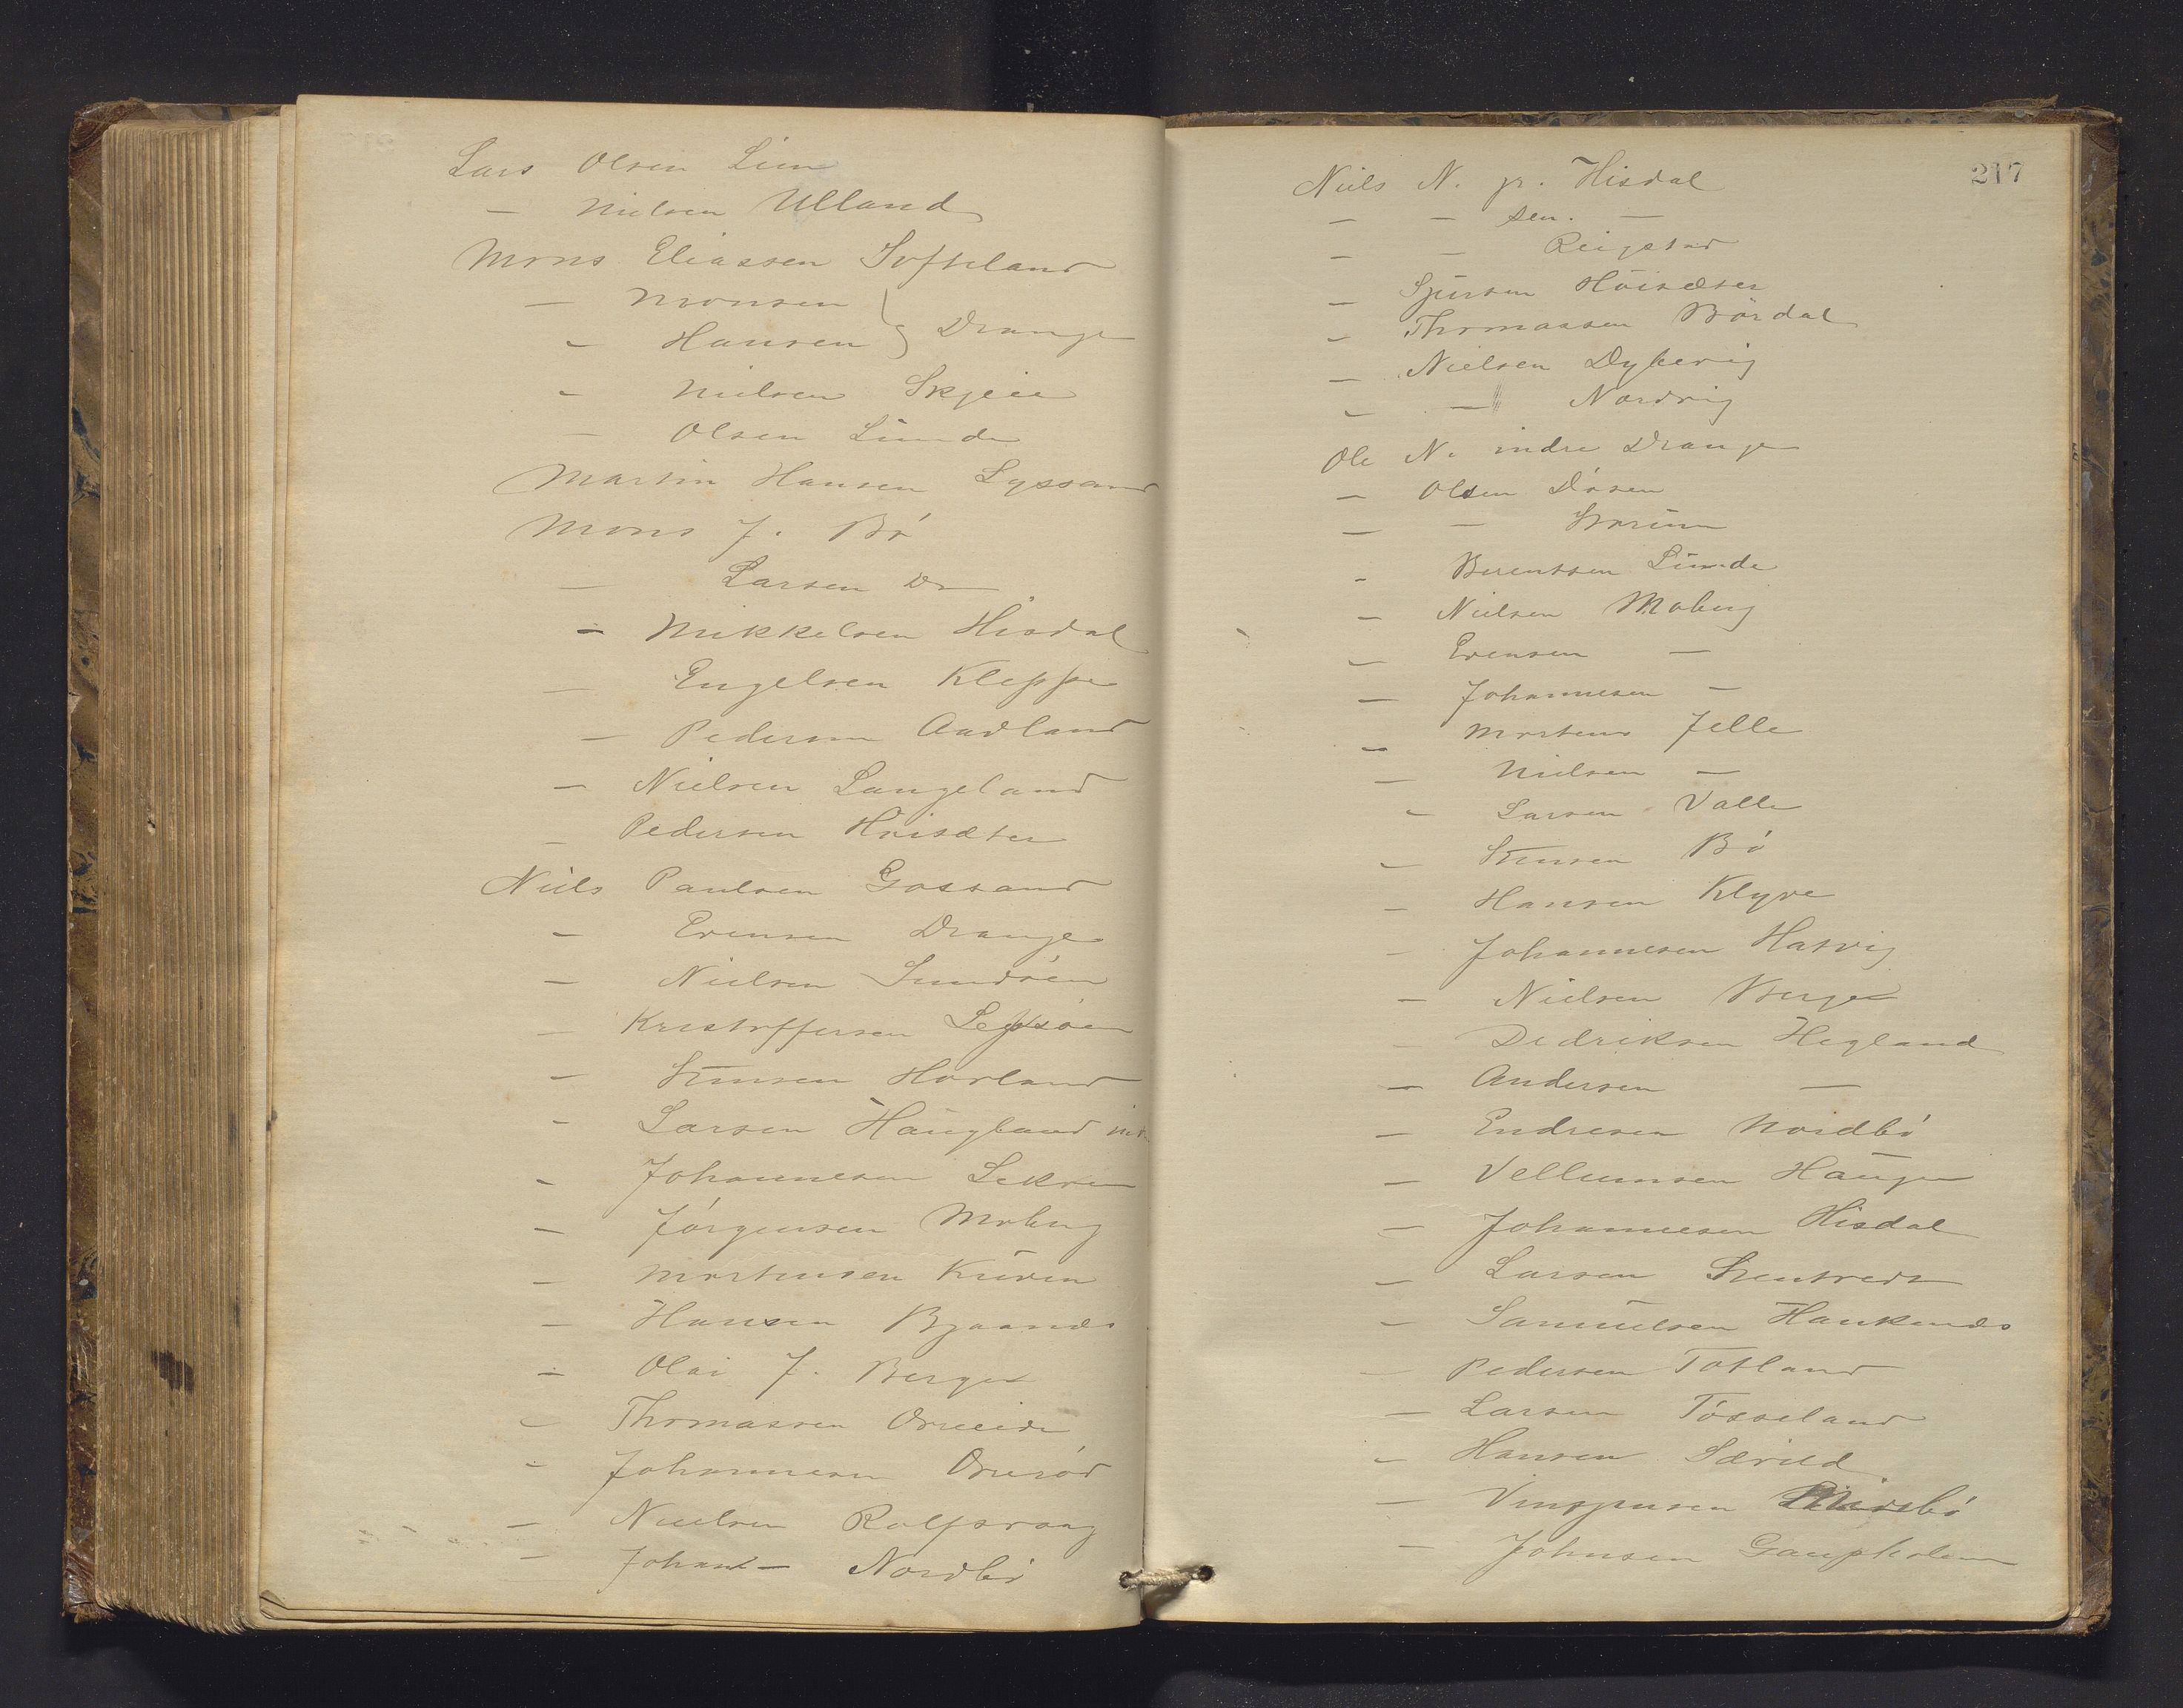 Lars Olsen Lien
— Nielsen Ulland
Mons Eliassen Softeland
— Monsen
— Hansen } Drange
— Nielsen Skjeie
— Olsen Lunde
Martin Hansen Lyssand
Mons J. Bö
— Larsen Do
— Mikkelsen Hisdal
— Engelsen Kleppe
— Pedersen Aadland
— Nielsen Langeland
— Pedersen Höisæter
Niels Paulsen Gassand
— Evensen Drange
— Nielsen Sundöen
— Kristoffersen Lepsöen
— Knusen Hovland
— Larsen Haugland
— Johannesen Lekven
— Jörgensen Moberg
— Mortensen Kuven
— Hansen Bjaanæs
— Olai J. Berge
— Thomassen Orreeide
— Johannesen
— Nielsen Rolfsvaag
— Johan — Nordbö
217
Niels N. jr. Hisdal
— — sen. —
— — Reigstad
— Sjursen Höisæter
— Thomassen Bördal
— Nielsen Dybevig
— — Nordvig
Ole N. indre Drange
— Olsen Dösen
— —
— Berentsen Lunde
— Nielsen Moberg
— Evensen —
— Johannesen —
— Mortens Jelle
— Nielsen —
— Larsen Valle
— Knusen Bö
— Hansen Klyve
— Johannesen Hatvig
— Nielsen Berge
— Didriksen Hegland
— Andersen —
— Endresen Nordbö
— Vellumsen Hauge
— Johannesen Hisdal
— Larsen
— Samuelsen Haukenæs
— Pedersen Tøtland
— Larsen Tösseland
— Hansen Særvold
— Vinsjansen
— Johnsen Gaupholm